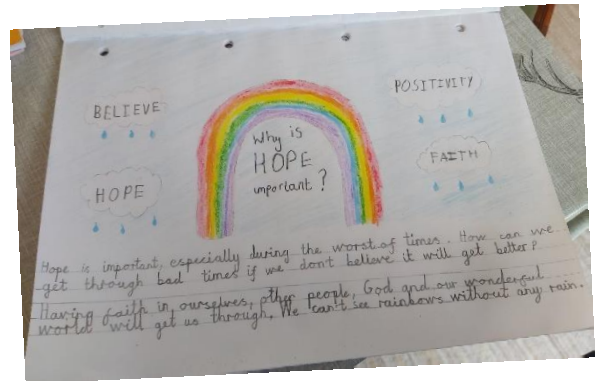 BELIEVE
POSITIVITY
HOPE
FAITH
Why is
HOPE
important?
Hope is important, especially during the worst of times. How can we
get through bad times if we don't believe it will get better?
Having faith in ourselves, other people, God and our wonderful
world will get us through. We can't see rainbows without any rain.